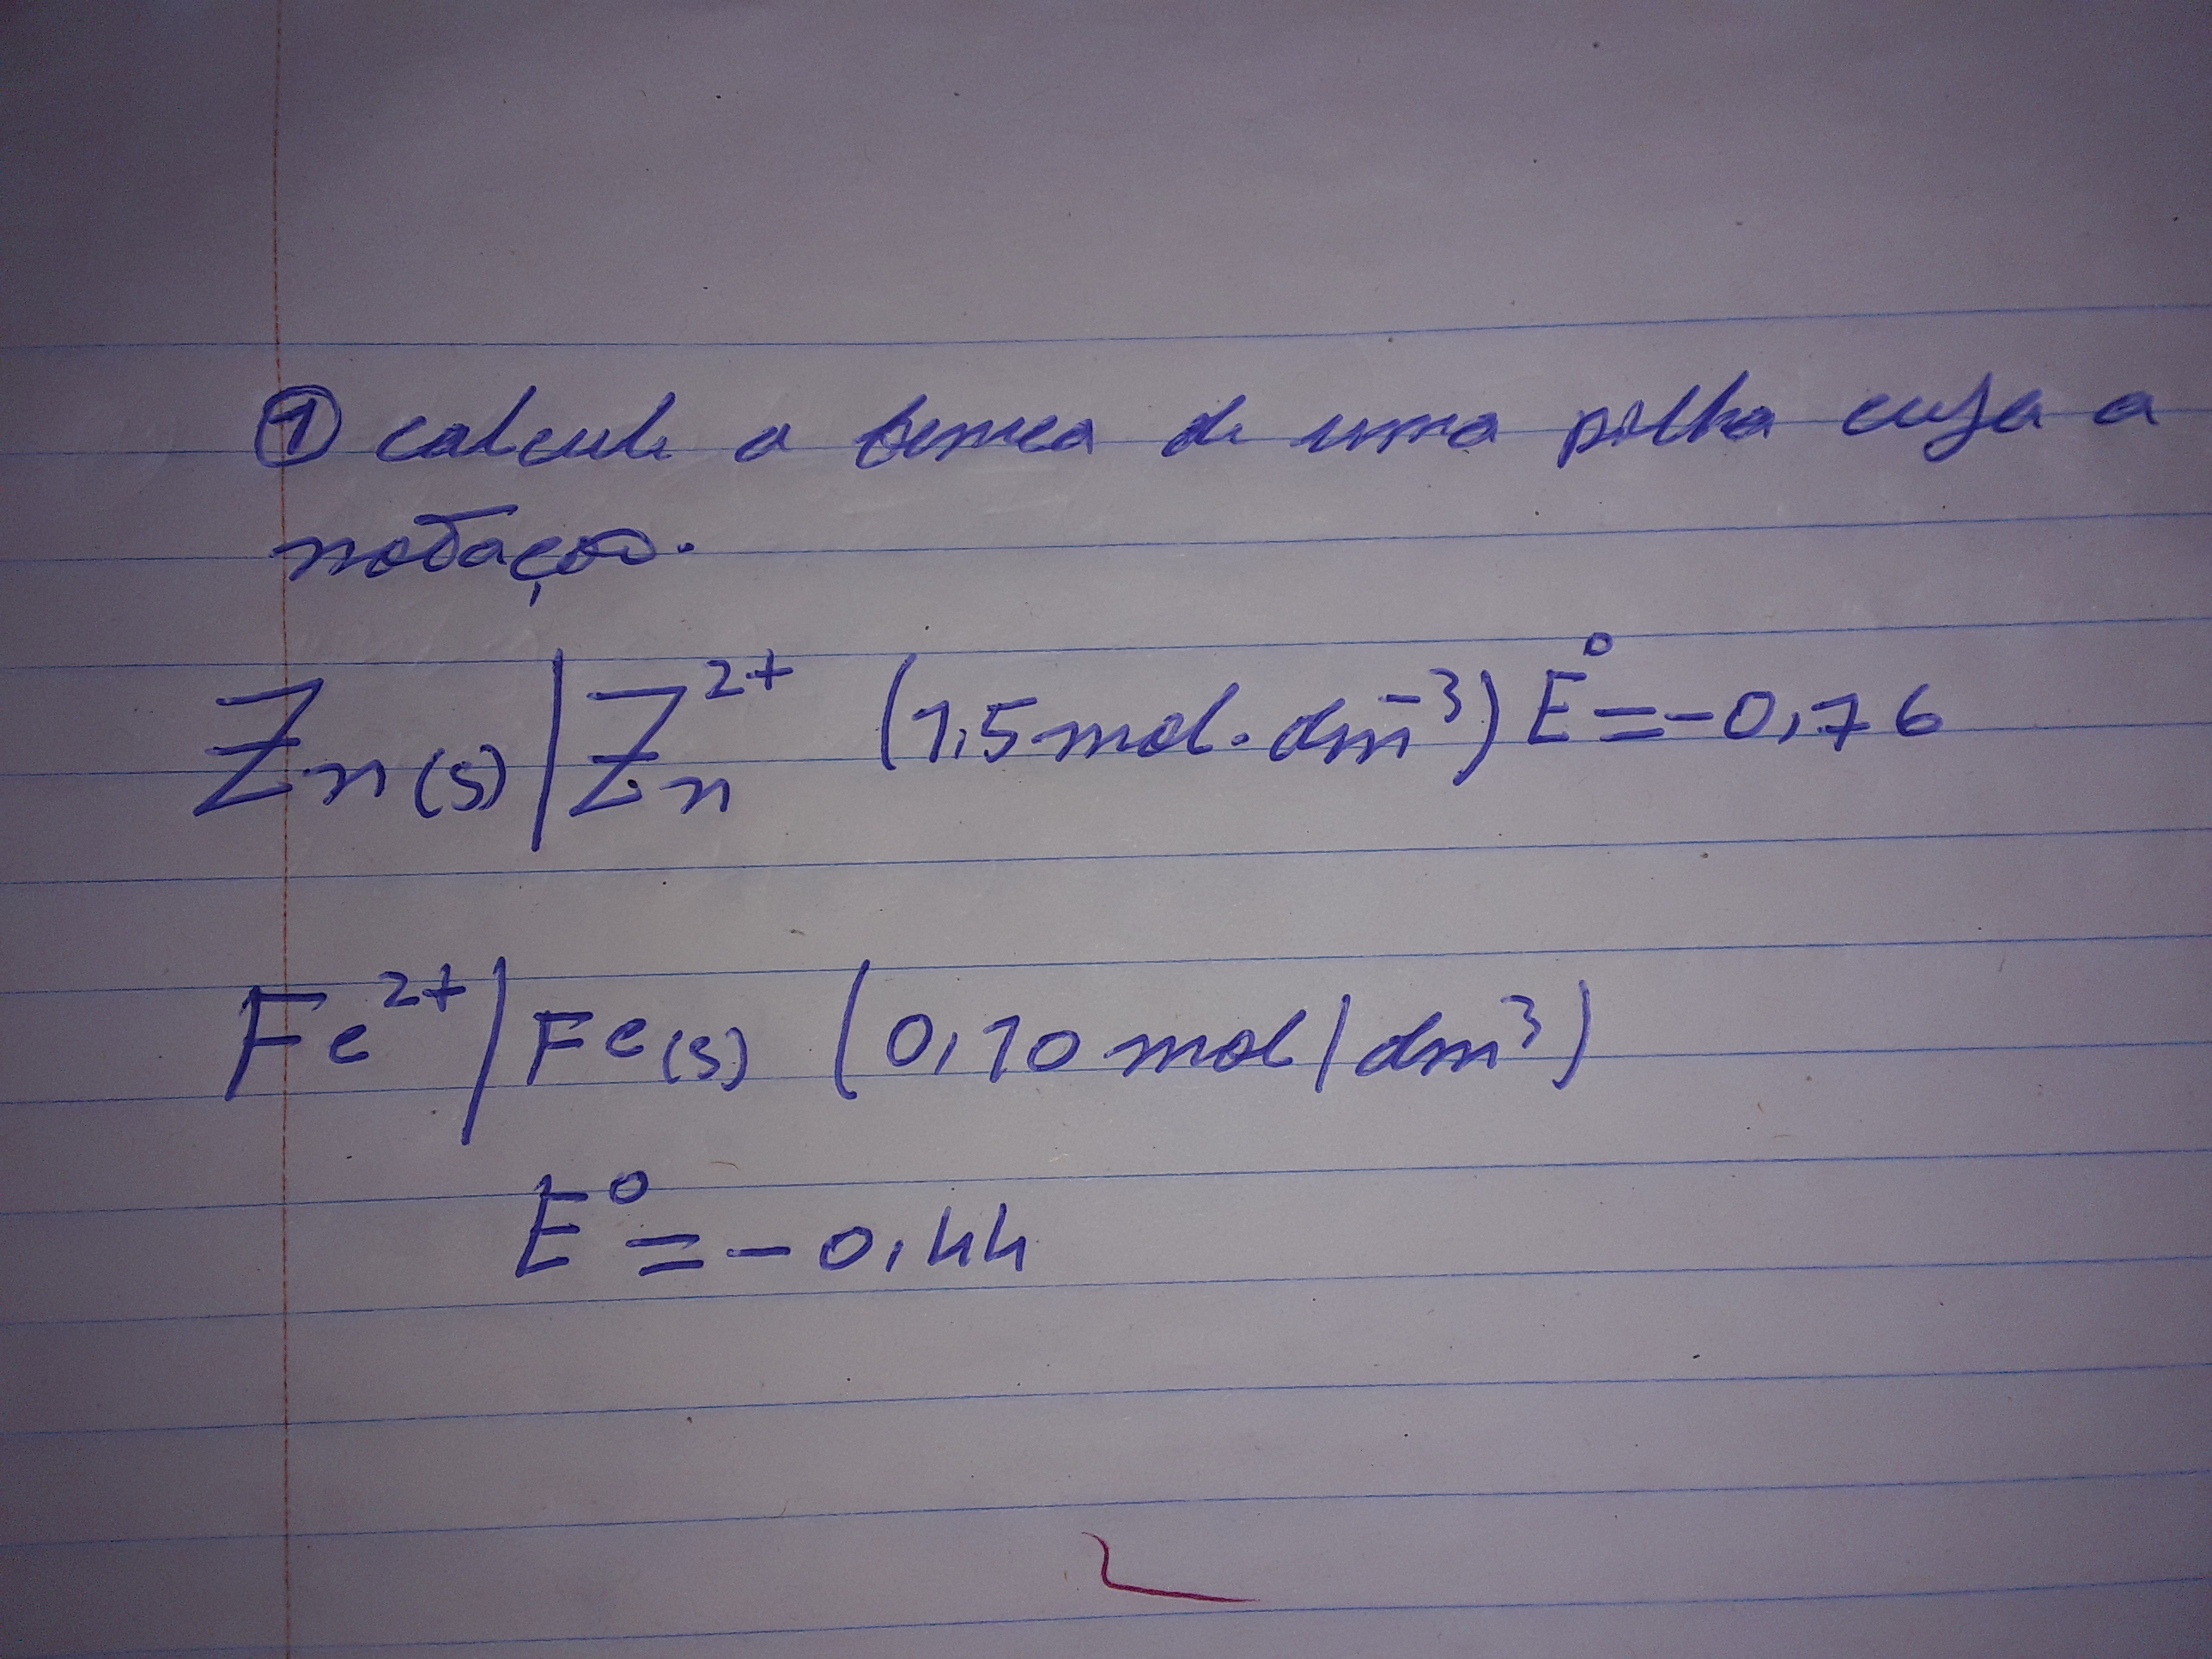 ① calcule a temca de uma pilha cuja a
notação.
Zn(s) | Zn²⁺ (1,5 mol. dm⁻³) E° = -0,76
Fe²⁺ | Fe(s) (0,10 mol / dm³)
E° = -0,44